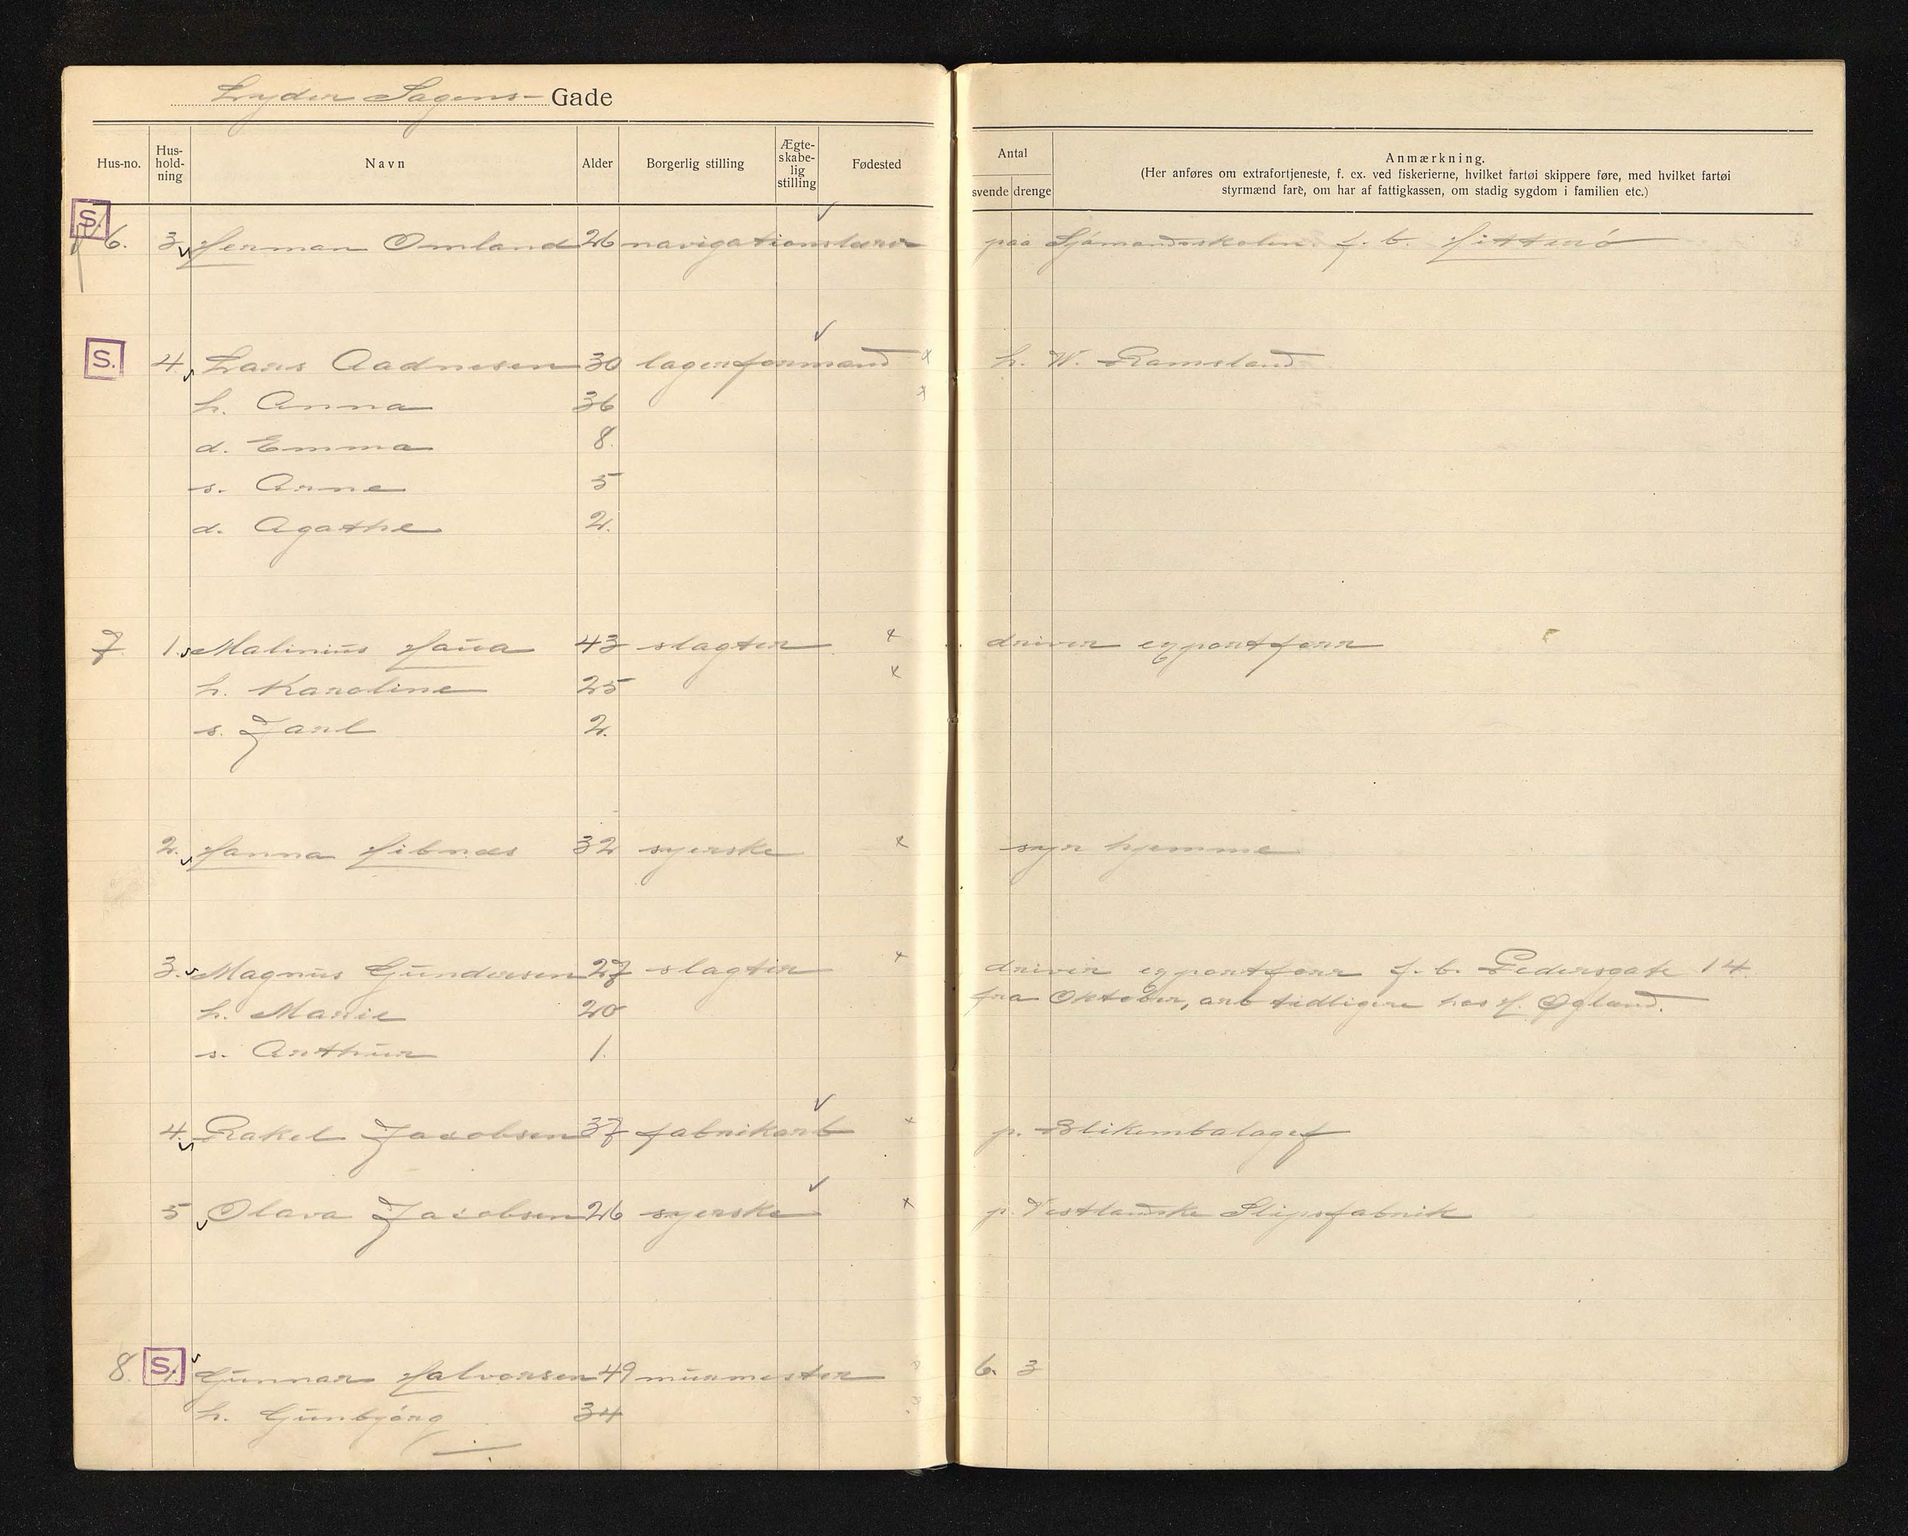 Lyder Sagens- Gade
Hus-no. Hus-hold-ning Navn Alder Borgerlig stilling Ægte-skabe-lig stilling Fødested Antal svende drenge Anmærkning.
(Her anføres om extrafortjeneste, f. ex. ved fiskerierne, hvilket fartøi skippere føre, med hvilket fartøi
styrmænd fare, om har af fattigkassen, om stadig sygdom i familien etc.)
S.
6. 3. Herman Omland 26 navigationslærer paa Sjømandsskolen. f. b. Hitterø
S. 4. Lars Aadnesen 30 lagerformand x h. W. Ramsland
h. Anna 36 x
d. Emma 8.
s. Arne 5
d. Agathe 2.
7. 1. Malinius Haua 43 slagter x driver egportforr
h. Karoline 25 x
s. Jarl 2.
2. Hanna Hibnæs 32 syerske x syr hjemme
3. Magnus Gundersen 27 slagter x driver egportforr f. b. Pedersgate 14.
fra Oktober, arb tidligere hos H. Øgland.
h. Marie 20
s. Arthur 1.
4. Rakel Jacobsen 37 fabrikarb x p. Blikemballagef
5 Olava Jacobsen 26 syerske x p. Vestlandske Slipsfabrik
8. S. 1. Gunnar Halvorsen 49 murmester 6. 3
h. Gunbjørg 34